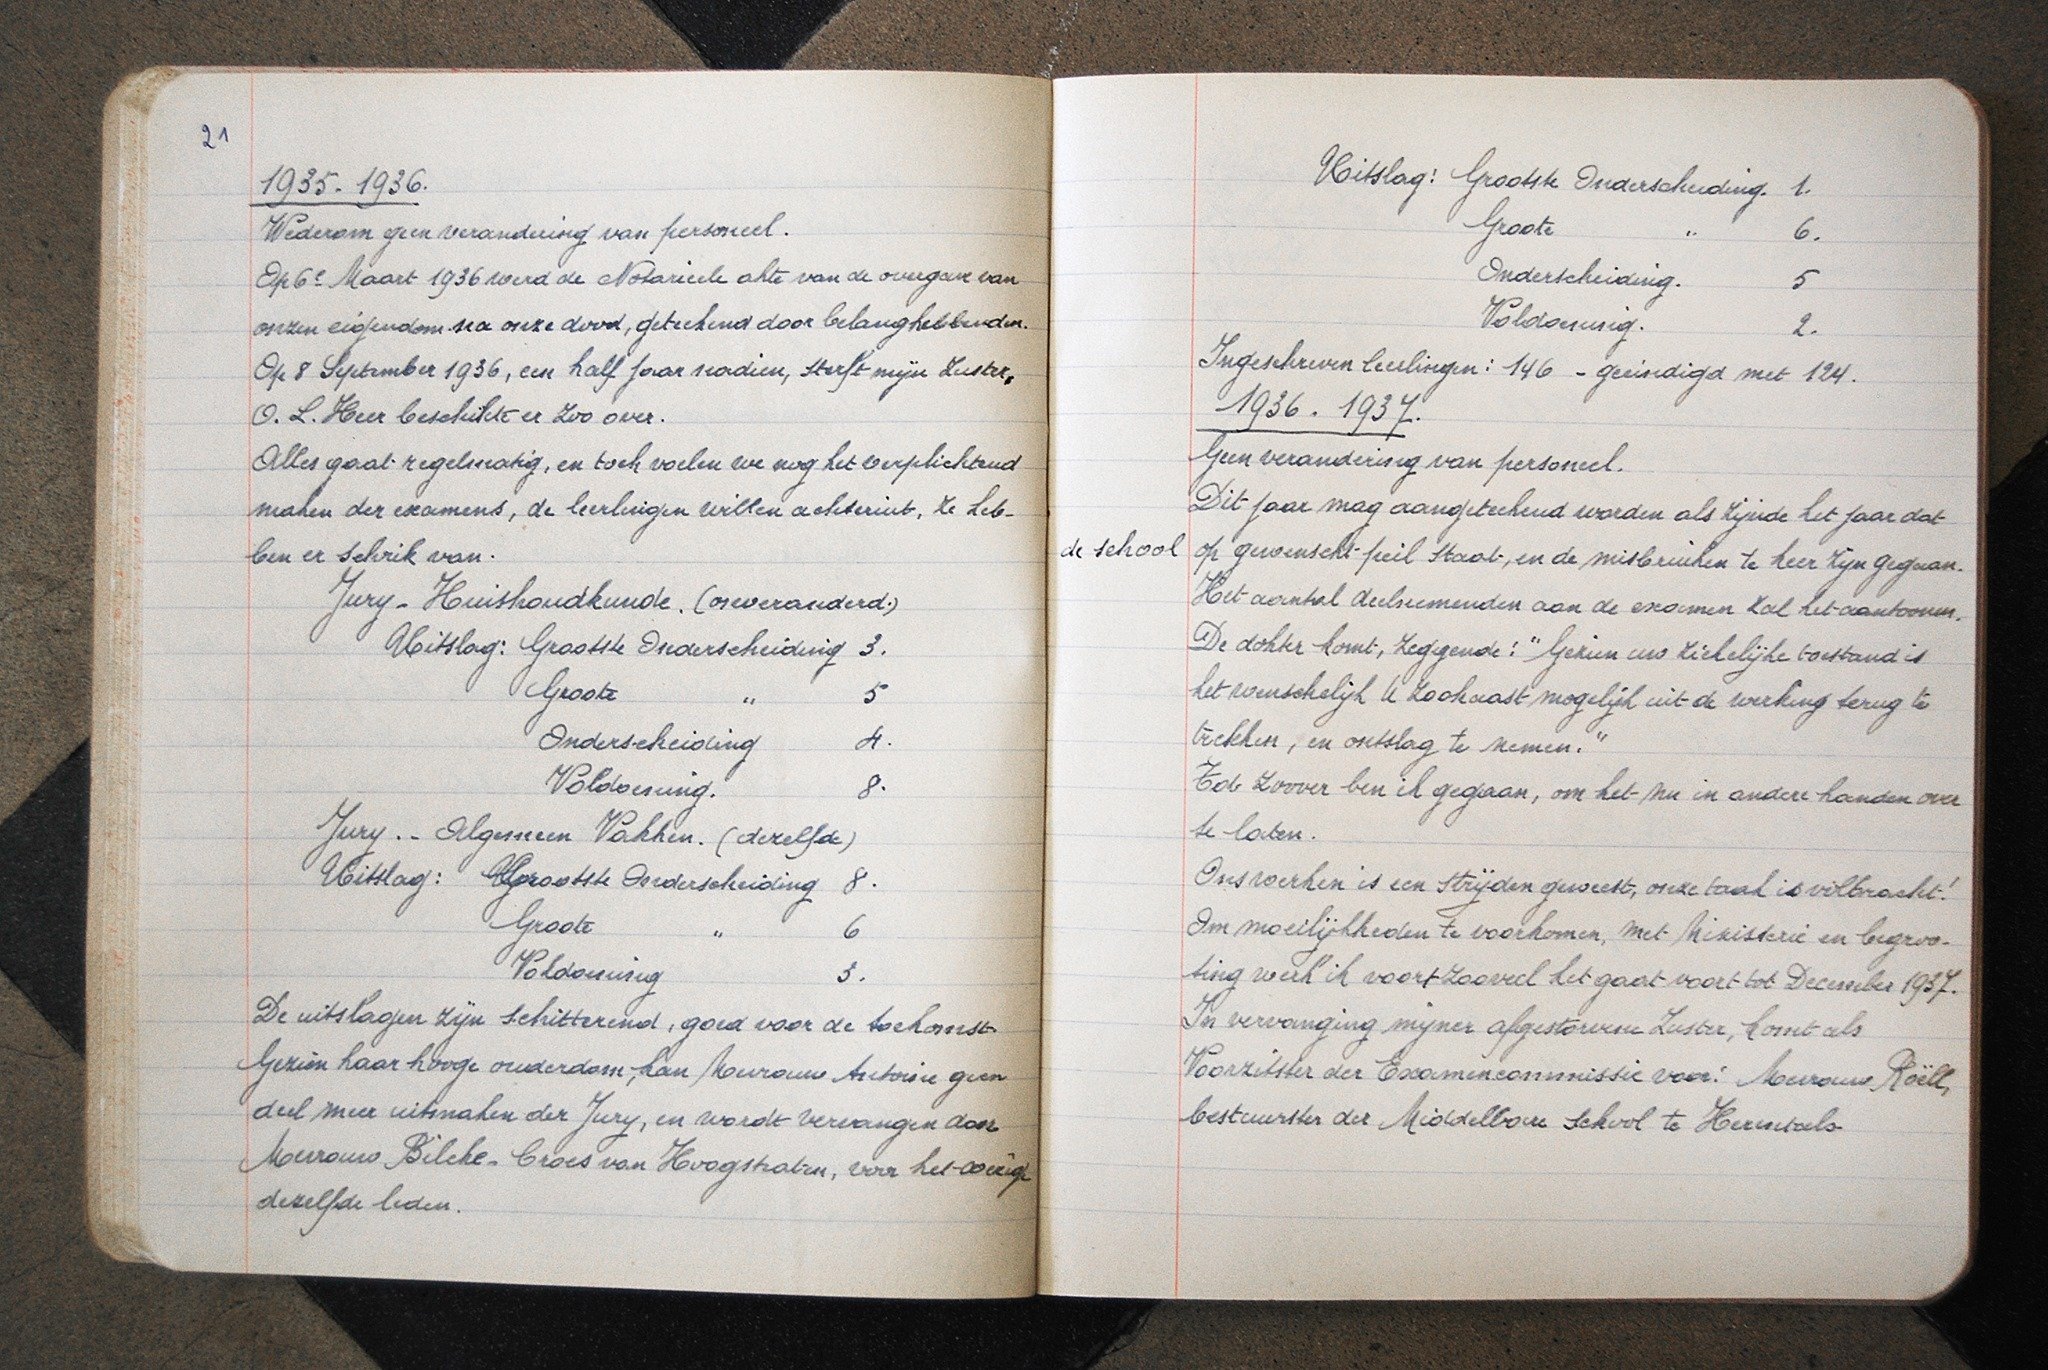 21
1935-1936.
Wederom geen verandering van personeel.
Op 6e Maart 1936 werd de Notarieele akte van de overgave van
onzen eigendom na onze dood, geteekend door belanghebbenden.
Op 8 September 1936, een half jaar nadien, sterft mijn Zuster,
O. L. Heer beschikte er zoo over.
Alles gaat regelmatig, en toch voelen we nog het verplichtend
maken der examens, de leerlingen willen achteruit, ze heb-
ben er schrik van.
Jury - Huishoudkunde. (onveranderd.)
Uitslag: Grootste Onderscheiding 3.
Groote " 5
Onderscheiding 4.
Voldoening. 8.
Jury. - Algemeen Vakken. (dezelfde)
Uitslag: Grootste Onderscheiding 8.
Groote " 6
Voldoening 3.
De uitslagen zijn schitterend, goed voor de toekomst
Gezien haar hooge ouderdom, kan Mevrouw Antoine geen
deel meer uitmaken der Jury, en wordt vervangen door
Mevrouw Bilcke-Croes van Hoogstraten, voor het overige
dezelfde leden.
Uitslag: Grootste Onderscheiding. 1.
Groote " 6.
Onderscheiding. 5
Voldoening. 2.
Ingeschreven leerlingen: 146 - geëindigd met 124.
1936. 1937.
Geen verandering van personeel.
Dit jaar mag aangeteekend worden als zijnde het jaar dat
de school op gewenscht peil staat, en de misbruiken te keer zijn gegaan.
Het aantal deelnemenden aan de examen zal het aantoonen.
De dokter komt, zeggende: "Gezien uw ziekelijke toestand is
het wenschelijk U zoohaast mogelijk uit de werking terug te
trekken, en ontslag te nemen."
Tot zoover ben ik gegaan, om het nu in andere handen over
te laten.
Ons werken is een strijden geweest, onze taak is volbracht!
Om moeilijkheden te voorkomen, met Ministerie en begroo-
ting werk ik voort zooveel het gaat voort tot December 1937.
In vervanging mijner afgestorvene Zuster, komt als
Voorzitster der Examencommissie voor: Mevrouw Roëll,
bestuurster der Middelbare School te Herentals